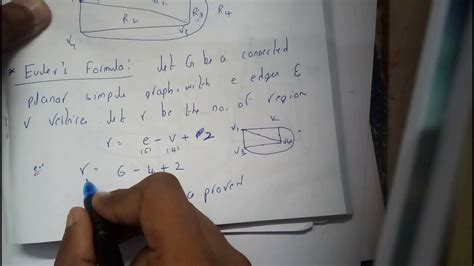 R2 R3 R4
V4 V3
* Euler's Formula: let G be a connected
planar simple graph with e edges &
v vertices let r be the no. of region
r = e - v + 2
(6) (4)
V1 V2
V3 V4
r = 6 - 4 + 2
a proved